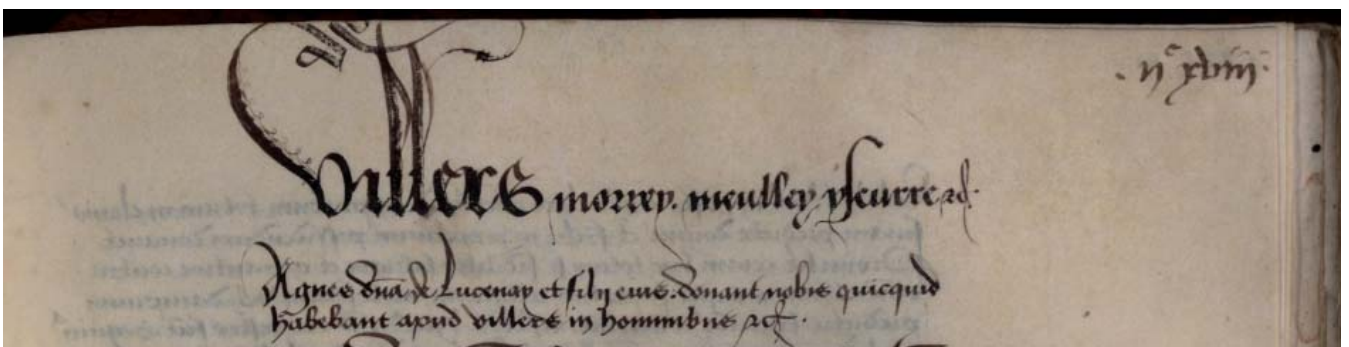 .iiᶜ xviii.
Villers morrey. meulley yseurre &c.
Agnes dnā de Lucenay et filij eius. donant nobis quicquid
habebant apud villers in hominibus &c.